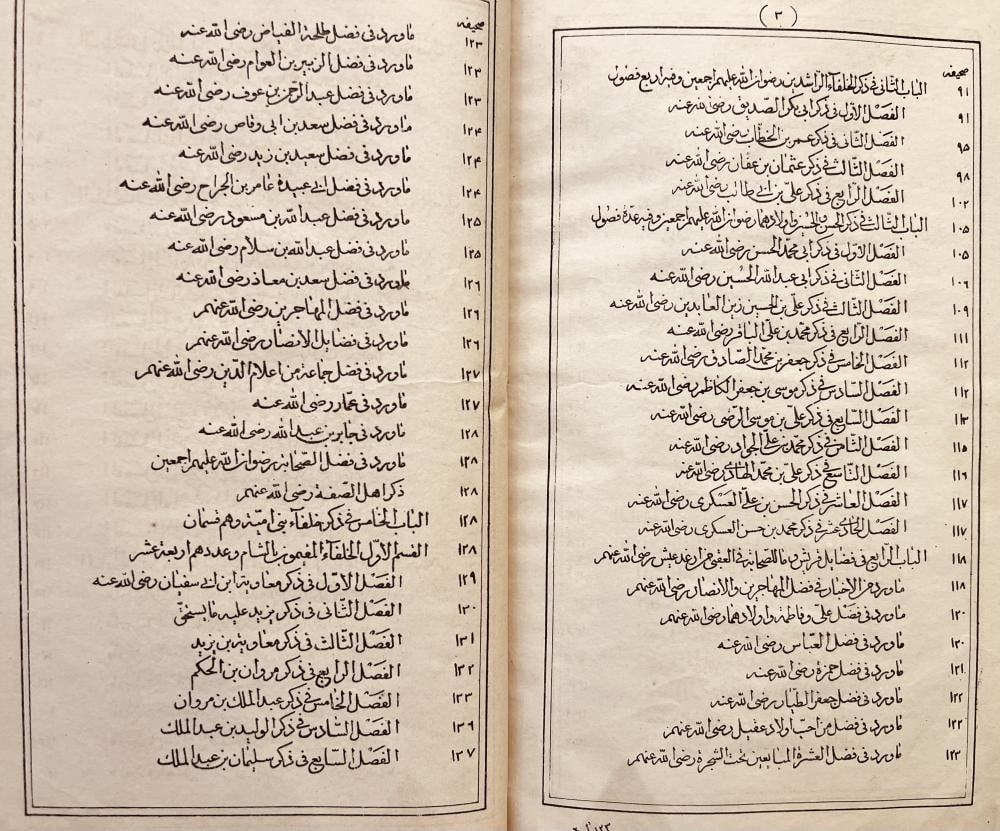 ( ٣ )
صحيفه
٩١ الباب الثانى فى ذكر الخلفآء الراشدين رضوان الله عليهم اجمعين وفيه اربع فصول
٩١ الفصل الاول فى ذكر ابى بكر الصديق رضى الله عنه
٩٥ الفصل الثانى فى ذكر عمر بن الخطاب رضى الله عنه
٩٨ الفصل الثالث فى ذكر عثمان بن عفان رضى الله عنه
١٠٢ الفصل الرابع فى ذكر على بن ابى طالب رضى الله عنه
١٠٥ الباب الثالث فى ذكر الحسن والحسين واولادهما رضوان الله عليهم اجمعين وفيه عدة فصول
١٠٥ الفصل الاول فى ذكر ابى محمد الحسن رضى الله عنه
١٠٦ الفصل الثانى فى ذكر ابى عبد الله الحسين رضى الله عنه
١٠٩ الفصل الثالث فى ذكر على بن الحسين زين العابدين رضى الله عنه
١١١ الفصل الرابع فى ذكر محمد بن على الباقر رضى الله عنه
١١٢ الفصل الخامس فى ذكر جعفر بن محمد الصادق رضى الله عنه
١١٢ الفصل السادس فى ذكر موسى بن جعفر الكاظم رضى الله عنه
١١٣ الفصل السابع فى ذكر على بن موسى الرضى رضى الله عنه
١١٥ الفصل الثامن فى ذكر محمد بن على الجواد رضى الله عنه
١١٦ الفصل التاسع فى ذكر على بن محمد الهادى رضى الله عنه
١١٧ الفصل العاشر فى ذكر الحسن بن على العسكرى رضى الله عنه
١١٧ الفصل الحادى عشر فى ذكر محمد بن حسن العسكرى رضى الله عنه
١١٨ الباب الرابع فى فضايل قريش وما للصحابة رضى الله عنهم
١١٨ ماورد من الاخبار فى فضل المهاجرين والانصار رضى الله عنهم
١٢٠ ماورد فى فضل على وفاطمة واولادهما رضى الله عنهم
١٢٠ ماورد فى فضل العباس رضى الله عنه
١٢١ ماورد فى فضل حمزة رضى الله عنه
١٢٢ ماورد فى فضل جعفر الطيار رضى الله عنه
١٢٢ ماورد فى فضل من احب اولاد عقيل رضى الله عنهم
١٢٣ ماورد فى فضل العشرة المبايعين تحت الشجرة رضى الله عنهم
صحيفه
١٢٣ ماورد فى فضل طلحة الفياض رضى الله عنه
١٢٣ ماورد فى فضل الزبير بن العوام رضى الله عنه
١٢٣ ماورد فى فضل عبد الرحمن بن عوف رضى الله عنه
١٢٤ ماورد فى فضل سعد بن ابى وقاص رضى الله عنه
١٢٤ ماورد فى فضل سعيد بن زيد رضى الله عنه
١٢٤ ماورد فى فضل ابى عبيدة عامر بن الجراح رضى الله عنه
١٢٥ ماورد فى فضل عبد الله بن مسعود رضى الله عنه
١٢٥ ماورد فى فضل عبد الله بن سلام رضى الله عنه
١٢٦ ماورد فى فضل سعد بن معاذ رضى الله عنه
١٢٦ ماورد فى فضل المهاجرين رضى الله عنهم
١٢٦ ماورد فى فضايل الانصار رضى الله عنهم
١٢٧ ماورد فى فضل جماعة من اعلام الدين رضى الله عنهم
١٢٧ ماورد فى عمار رضى الله عنه
١٢٨ ماورد فى جابر بن عبد الله رضى الله عنه
١٢٨ ماورد فى فضل الصحابة رضوان الله عليهم اجمعين
١٢٨ ذكر اهل الصفة رضى الله عنهم
١٢٨ الباب الخامس فى ذكر خلفآء بنى امية وهم قسمان
١٢٨ القسم الاول الخلفآء المقيمون بالشام وعددهم اربعة عشر
١٢٩ الفصل الاول فى ذكر معاوية ابن ابى سفيان رضى الله عنه
١٣٠ الفصل الثانى فى ذكر يزيد عليه مايستحق
١٣١ الفصل الثالث فى ذكر معاوية بن يزيد
١٣٢ الفصل الرابع فى ذكر مروان بن الحكم
١٣٣ الفصل الخامس فى ذكر عبد الملك بن مروان
١٣٦ الفصل السادس فى ذكر الوليد بن عبد الملك
١٣٧ الفصل السابع فى ذكر سليمان بن عبد الملك